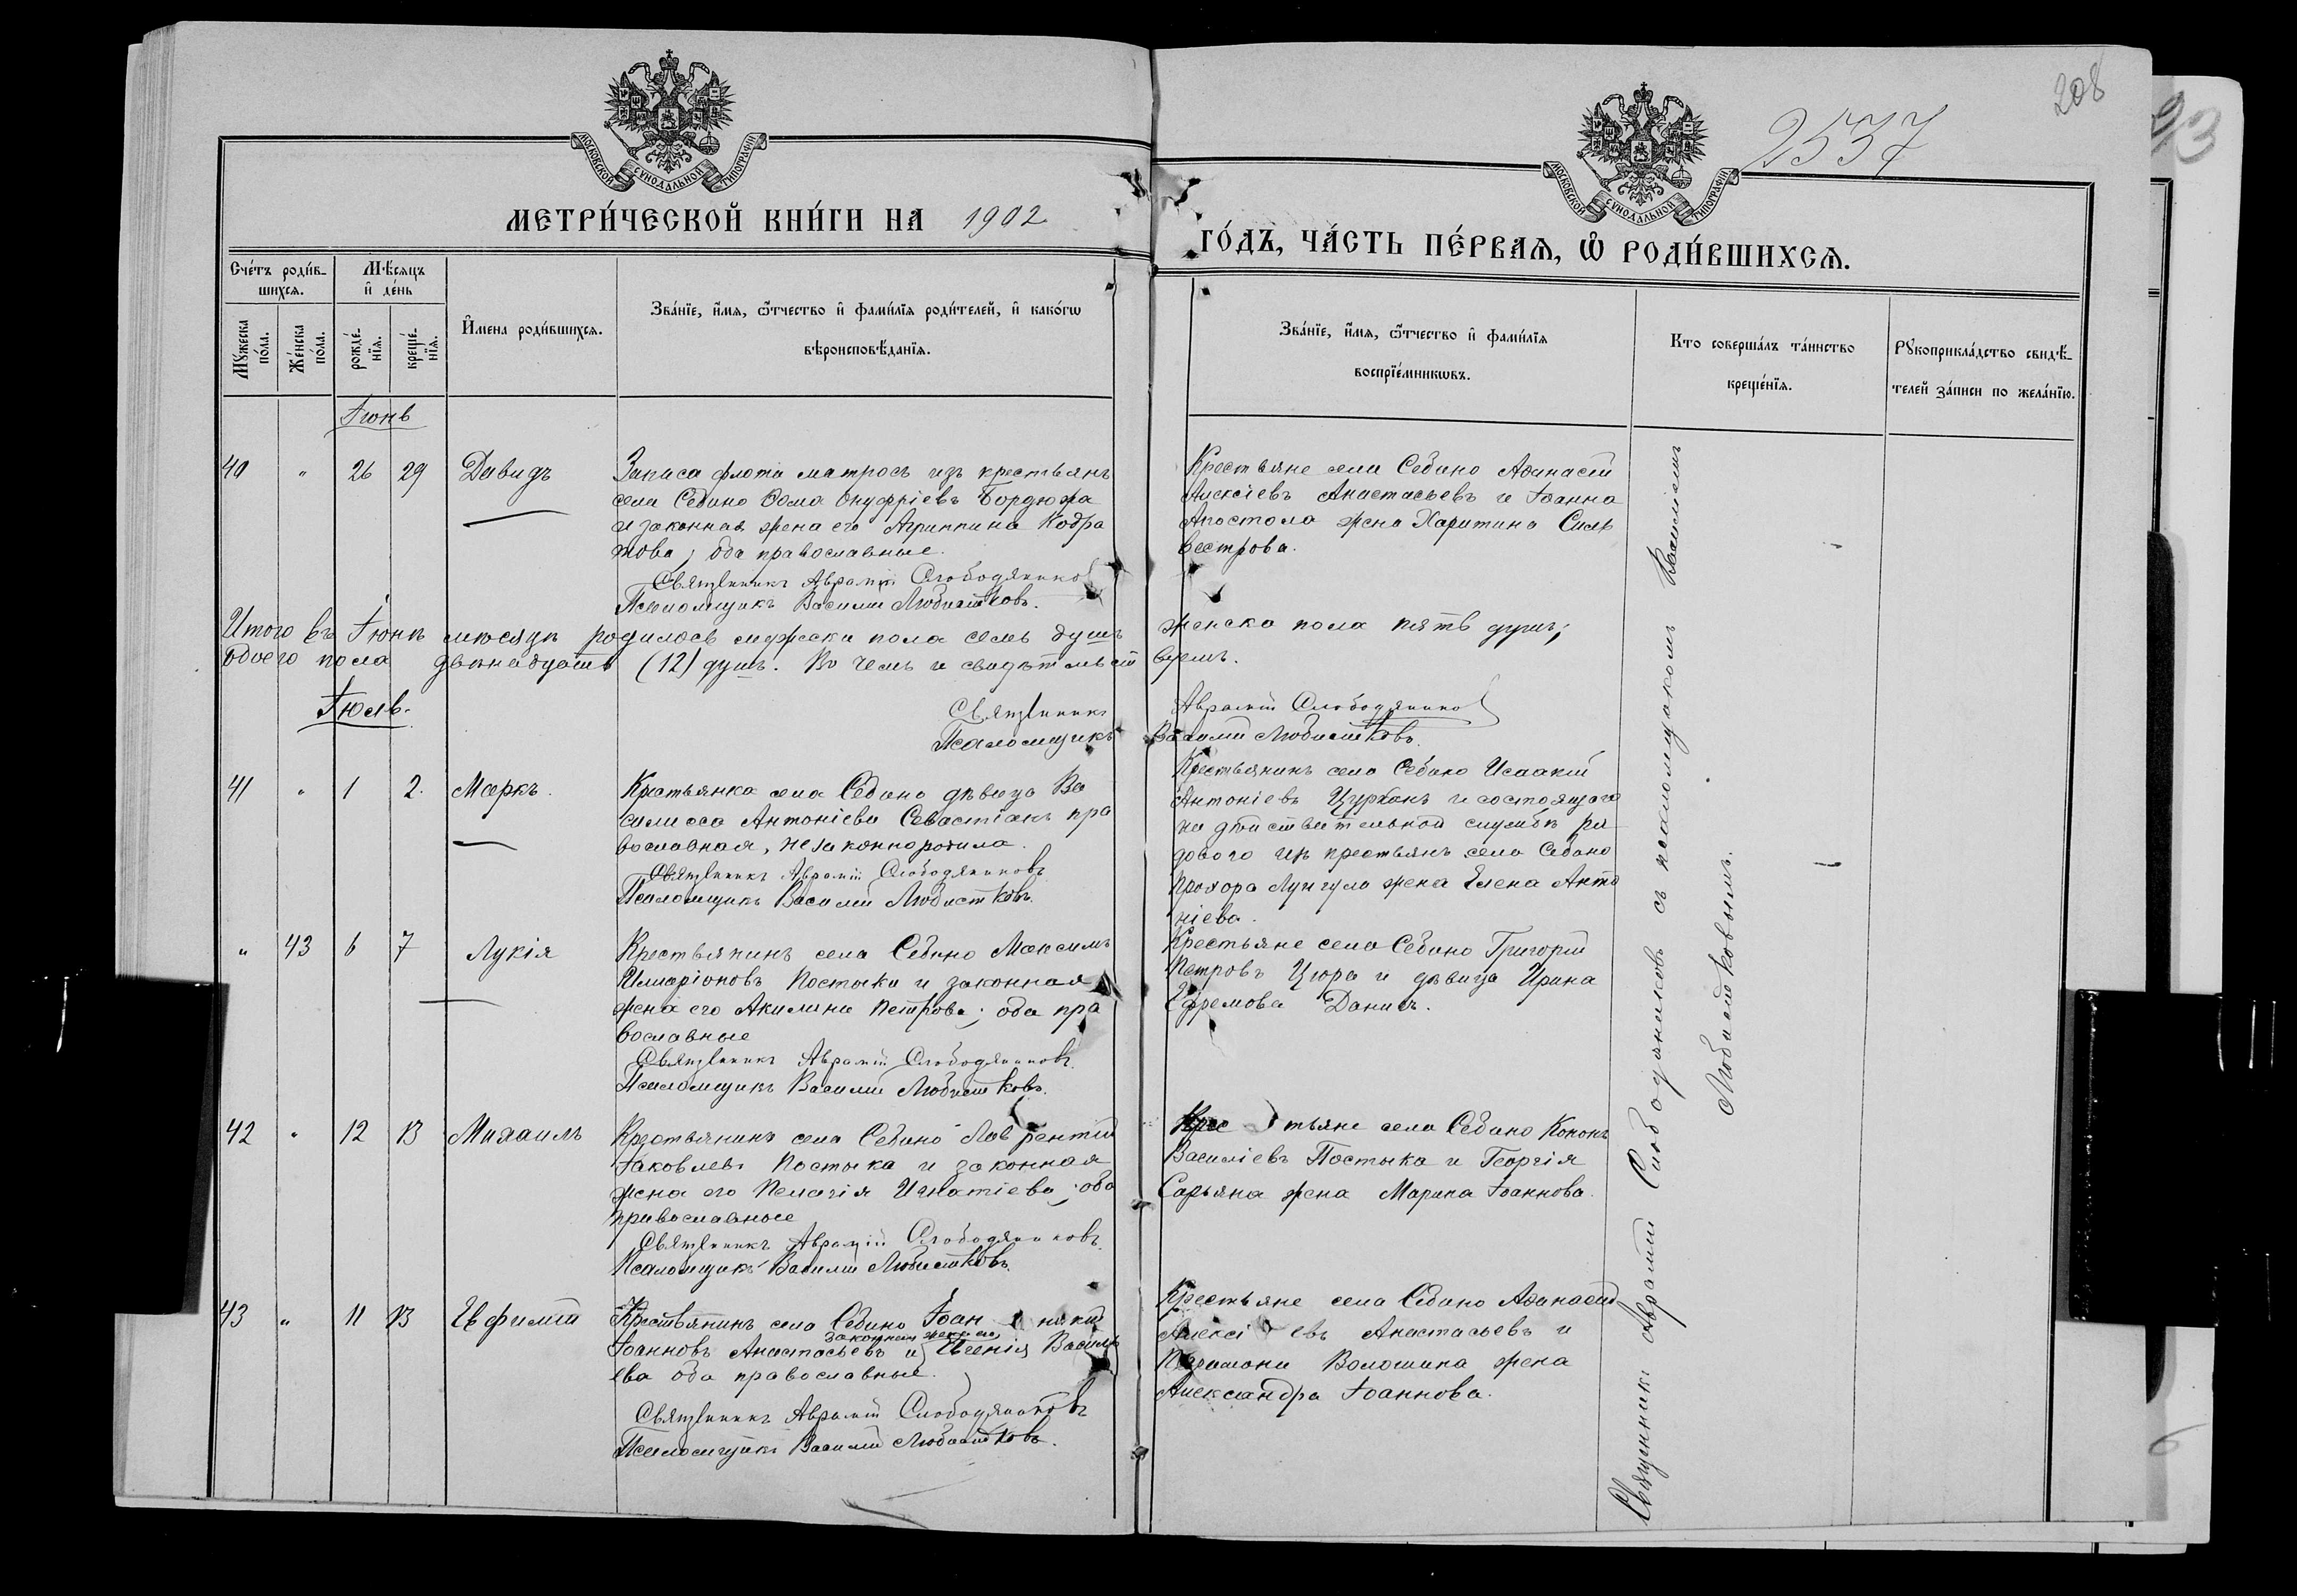 208
2537
93
МОСКОВСКОЙ СѴНОДАЛЬНОЙ ТИПОГРАФІИ
МОСКОВСКОЙ СѴНОДАЛЬНОЙ ТИПОГРАФІИ
МЕТРИ́ЧЕСКОЙ КНИ́ГИ НА 1902
ГО́ДЪ, ЧА́СТЬ ПЕ́РВАѦ, Ѡ҆ РОДИ́ВШИХСѦ.
Сче́тъ роди́в-
шихсѧ.
Мꙋ́жеска
по́ла.
Же́нска
по́ла.
Мѣ́сѧцъ
и҆ де́нь
рожде́-
нїѧ.
креще́-
нїѧ.
И҆мена роди́вшихсѧ.
Зва́нїе, и҆́мѧ, ѻ҆́тчество и҆ фами́лїѧ роди́телей, и҆ како́гѡ
вѣроисповѣ́данїѧ.
Зва́нїе, и҆́мѧ, ѻ҆́тчество и҆ фами́лїѧ
воспрїе́мникѡвъ.
Кто соверша́лъ та́инство
креще́нїѧ.
Рꙋкоприкла́дство свидѣ́-
телей за́писи по жела́нїю.
Іюнь
40 " 26 29 Давидъ
Запаса флота матросъ изъ крестьянъ
села Себино Ѳома Онуфріевъ Бордюжа
и законная жена его Агриппина Кодра
това; оба православные.
Священникъ Аврамій Слободяниковъ
Псаломщикъ Василій Любистковъ.
Крестьяне села Себино Аѳанасій
Алексіевъ Анастасьевъ и Іоанна
Апостола жена Харитина Силь
вестрова.
Итого въ Іюнѣ мѣсяцѣ родилось мужска пола семь душъ женска пола пять душъ;
обоего пола двѣнадцать (12) душъ. Въ чемъ и свидѣтельст вуемъ.
Священникъ Аврамій Слободяниковъ
Псаломщикъ Василій Любистковъ.
Іюль.
41 " 1 2. Маркъ.
Крестьянка села Себино дѣвица Ва
силиса Антоніева Севастіанъ пра
вославная, незаконнородила.
Священникъ Аврамій Слободяниковъ
Псаломщикъ Василій Любистковъ.
Крестьянинъ села Себино Исаакій
Антоніевъ Цурканъ и состоящаго
на дѣйствительной службѣ ря
дового изъ крестьянъ села Себино
Прохора Лунгула жена Елена Анто
ніева.
" 43 6 7 Лукія
Крестьянинъ села Себино Максимъ
Иларіоновъ Постыка и законная
жена его Акилина Петрова; оба пра
вославные
Священникъ Аврамій Слободяниковъ
Псаломщикъ Василій Любистковъ.
Крестьяне села Себино Григорій
Петровъ Цюра и дѣвица Ирина
Ефремова Данилъ.
42 " 12 13 Михаилъ
Крестьянинъ села Себино Лаврентій
Іаковлевъ Постыка и законная
жена его Пелагія Игнатіева; оба
православные
Священникъ Аврамій Слободяниковъ.
Псаломщикъ Василій Любистковъ.
Крестьяне села Себино Кононъ
Василіевъ Постыка и Георгія
Сарьяна жена Марина Іоаннова.
43 " 11 13 Евфимій
Крестьянинъ села Себино Іоанникій
законная жена его
Іоанновъ Анастасьевъ и Евгенія Василь
ева оба православные.
Священникъ Аврамій Слободяниковъ
Псаломщикъ Василій Любистковъ.
Крестьяне села Себино Аѳанасій
Алексіевъ Анастасьевъ и
Парамона Волошина жена
Александра Іоаннова.
Священникъ Аврамій Слободяниковъ съ псаломщикомъ Василіемъ
Любистковымъ.
6